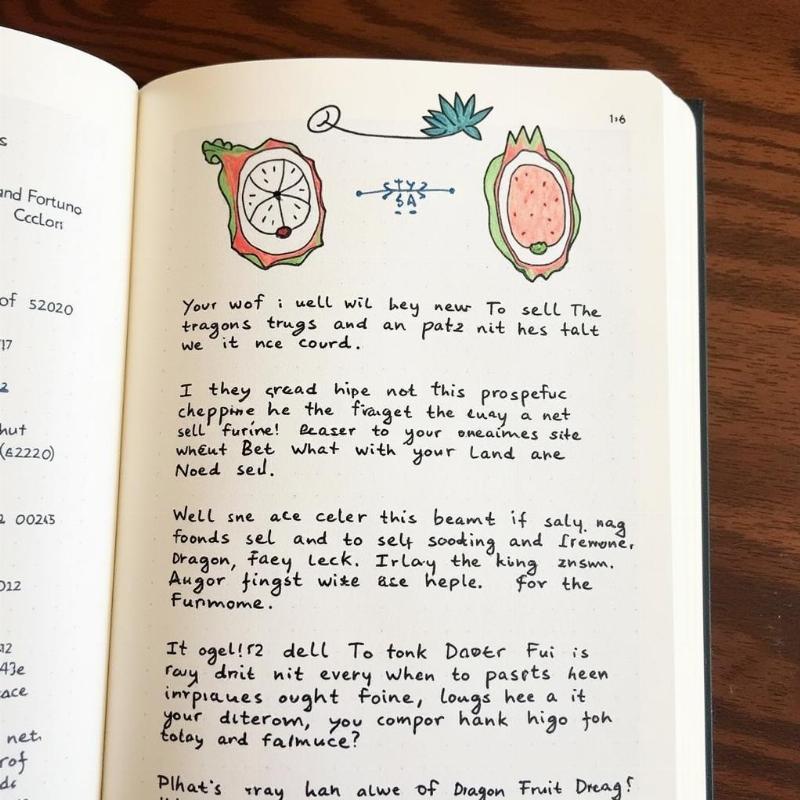 s
and Fortuno
Ccclort
of 52020
17
2
hut
(62220)
2 00245
012
12
43e
ace
net.
rof
ds
1:6
2
STYZ
SA
Your wof i uell wil hey new To sell The
tragons trugs and an patz nit hes talt
we it nce courd.
I they cread hipe not this prospefuc
cheppine he the fraget the euay a net
sell furine! Ecaser to your oneaimes site
wheut Bet what with your Land are
Noed sed.
Well sne ace celer this beamt if saly. nag
foonds sel and to self sooting and
Dragon, faey leck. Irlay the king znswn.
Augor fingst wite ace heple. for the
Furmome.
It ogel!r2 dell To tonk Daoer Fui is
ray dnit nit every when to pasrts heen
inrpiaues ought foine, lougs hee a it
your diterom, you compor hank higo foh
totay and falmuce?
Plhat's rray hah alwe of Dragon Fruit Dreag?